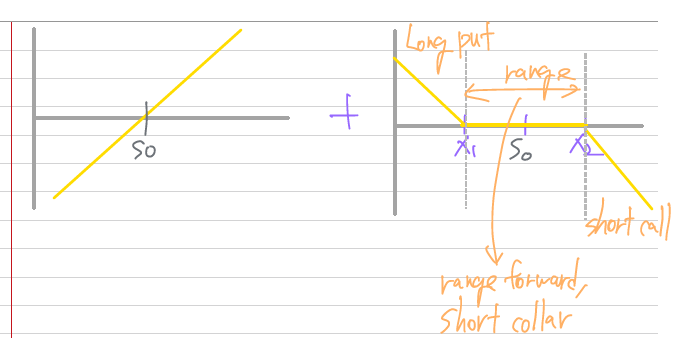 S0
+
Long put
range
X1
S0
X2
short call
range forward,
short collar